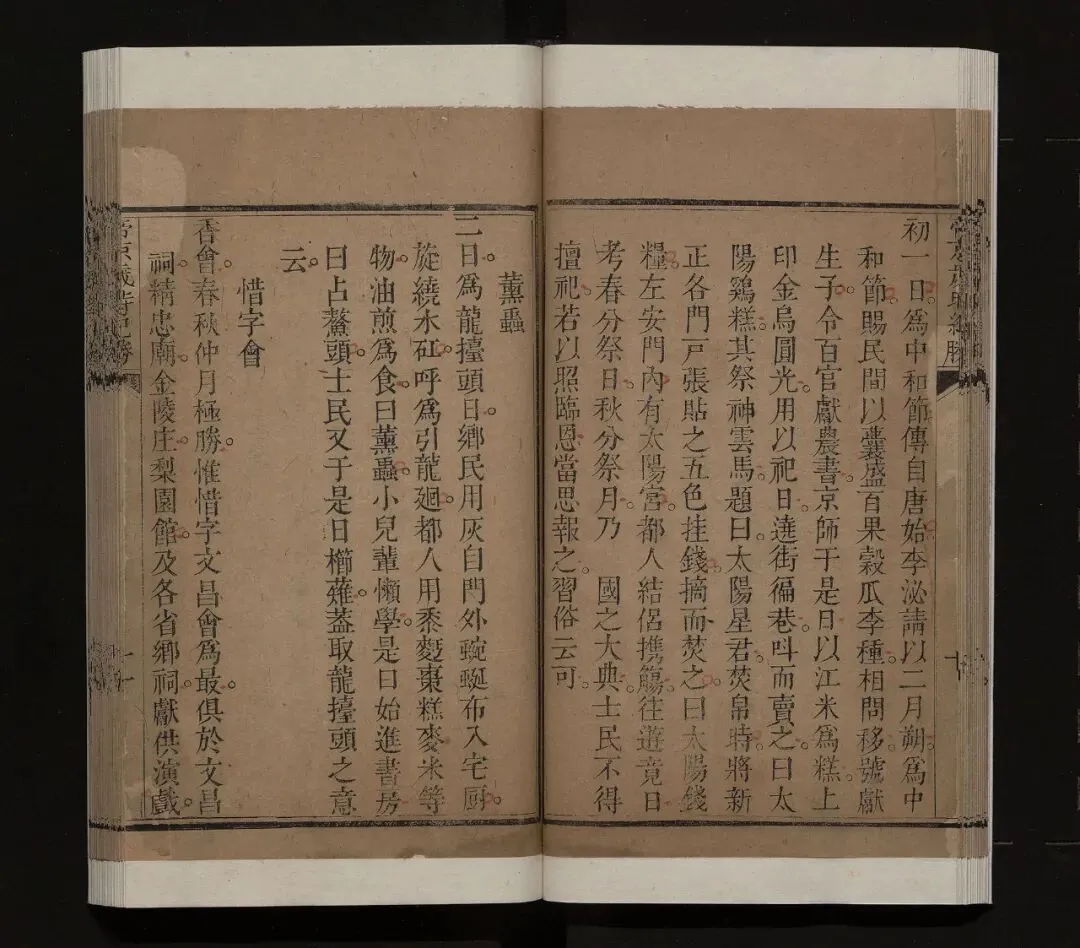 初一日。為中和節。傳自唐始。李泌請以二月朔為中
和節。賜民間以囊盛百果穀瓜李種。相問移號獻
生子。令百官獻農書。京師于是日以江米為糕。上
印金烏圓光。用以祀日。遶街徧巷。呌而賣之。曰太
陽鷄糕。其祭神雲馬。題曰太陽星君。焚帛時。將新
正各門戸張貼之五色挂錢。摘而焚之。曰太陽錢
糧。左安門內有太陽宮。都人結侶携觴。往遊竟日
考春分祭日。秋分祭月。乃　國之大典。士民不得
擅祀。若以照臨恩當思報之。習俗云可。
薰蟲
二日。為龍擡頭日。鄉民用灰自門外蜿蜒布入宅厨。
旋繞水砡。呼為引龍廻。都人用黍麪棗糕麥米等
物。油煎為食。曰薰蟲。小兒輩懶學。是日始進書房
曰占鰲頭。士民又于是日櫛薙。蓋取龍擡頭之意
云。
惜字會
香會。春秋仲月極勝。惟惜字文昌會為最。俱於文昌
祠。精忠廟。金陵庄。梨園館。及各省鄉祠。獻供演戲。